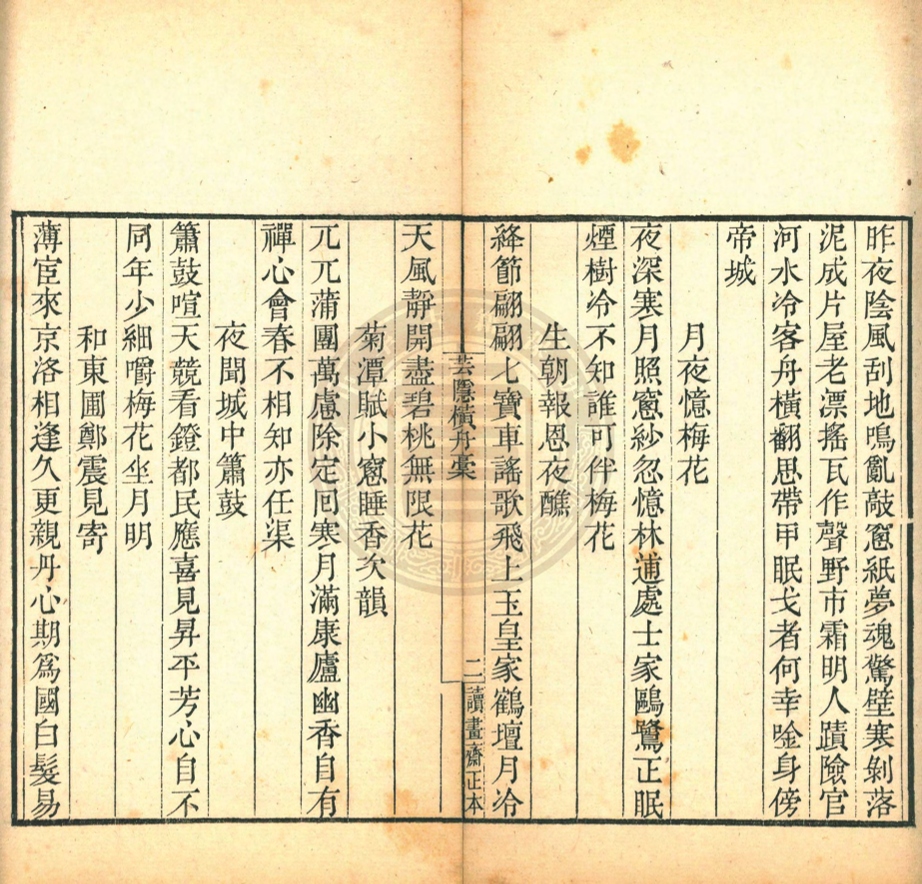 昨夜陰風刮地鳴亂敲窻紙夢魂驚壁寒剝落
泥成片屋老漂搖瓦作聲野市霜明人蹟險官
河水冷客舟橫翻思帶甲眠戈者何幸唫身傍
帝城
月夜憶梅花
夜深寒月照窻紗忽憶林逋處士家鷗鷺正眠
煙樹冷不知誰可伴梅花
生朝報恩夜醮
絳節翩翩七寶車謠歌飛上玉皇家鶴壇月冷
芸隱橫舟稾
二
讀畫齋正本
天風靜開盡碧桃無限花
菊潭賦小窻睡香次韻
兀兀蒲團萬慮除定回寒月滿康廬幽香自有
禪心會春不相知亦任渠
夜聞城中簫鼓
簫鼓喧天競看鐙都民應喜見昇平芳心自不
同年少細嚼梅花坐月明
和東圃鄭震見寄
薄宦來京洛相逢久更親丹心期爲國白髮易